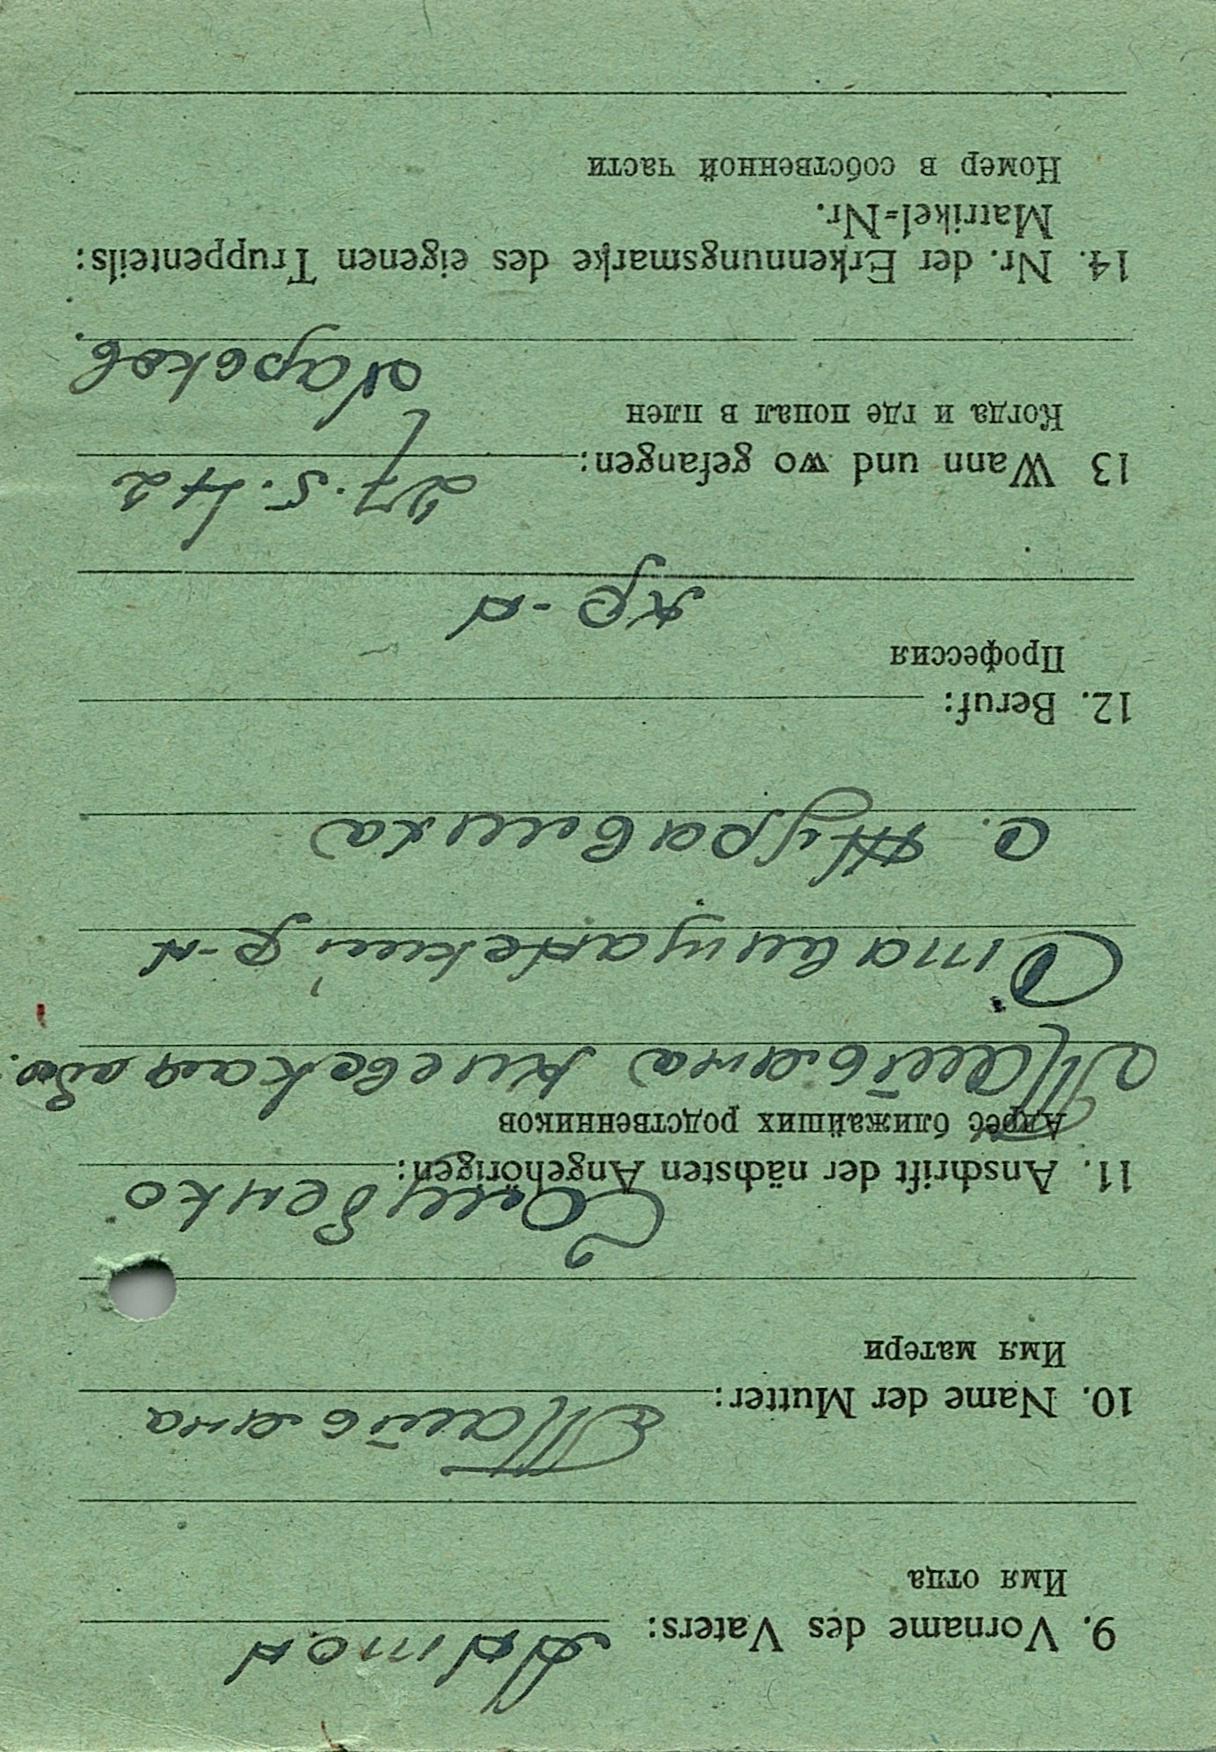 9. Vorname des Vaters: Антон
Имя отца
10. Name der Mutter: Татьяна
Имя матери
11. Anschrift der nächsten Angehörigen:
Адрес ближайших родственников
Татьяна Киевская обл.
Ставищанский р-н
с. Журавлиха
12. Beruf:
Профессия
кр-н
13 Wann und wo gefangen: 27.5.42
Когда и где попал в плен
Харьков.
14. Nr. der Erkennungsmarke des eigenen Truppenteils:
Matrikel=Nr.
Номер в собственной части